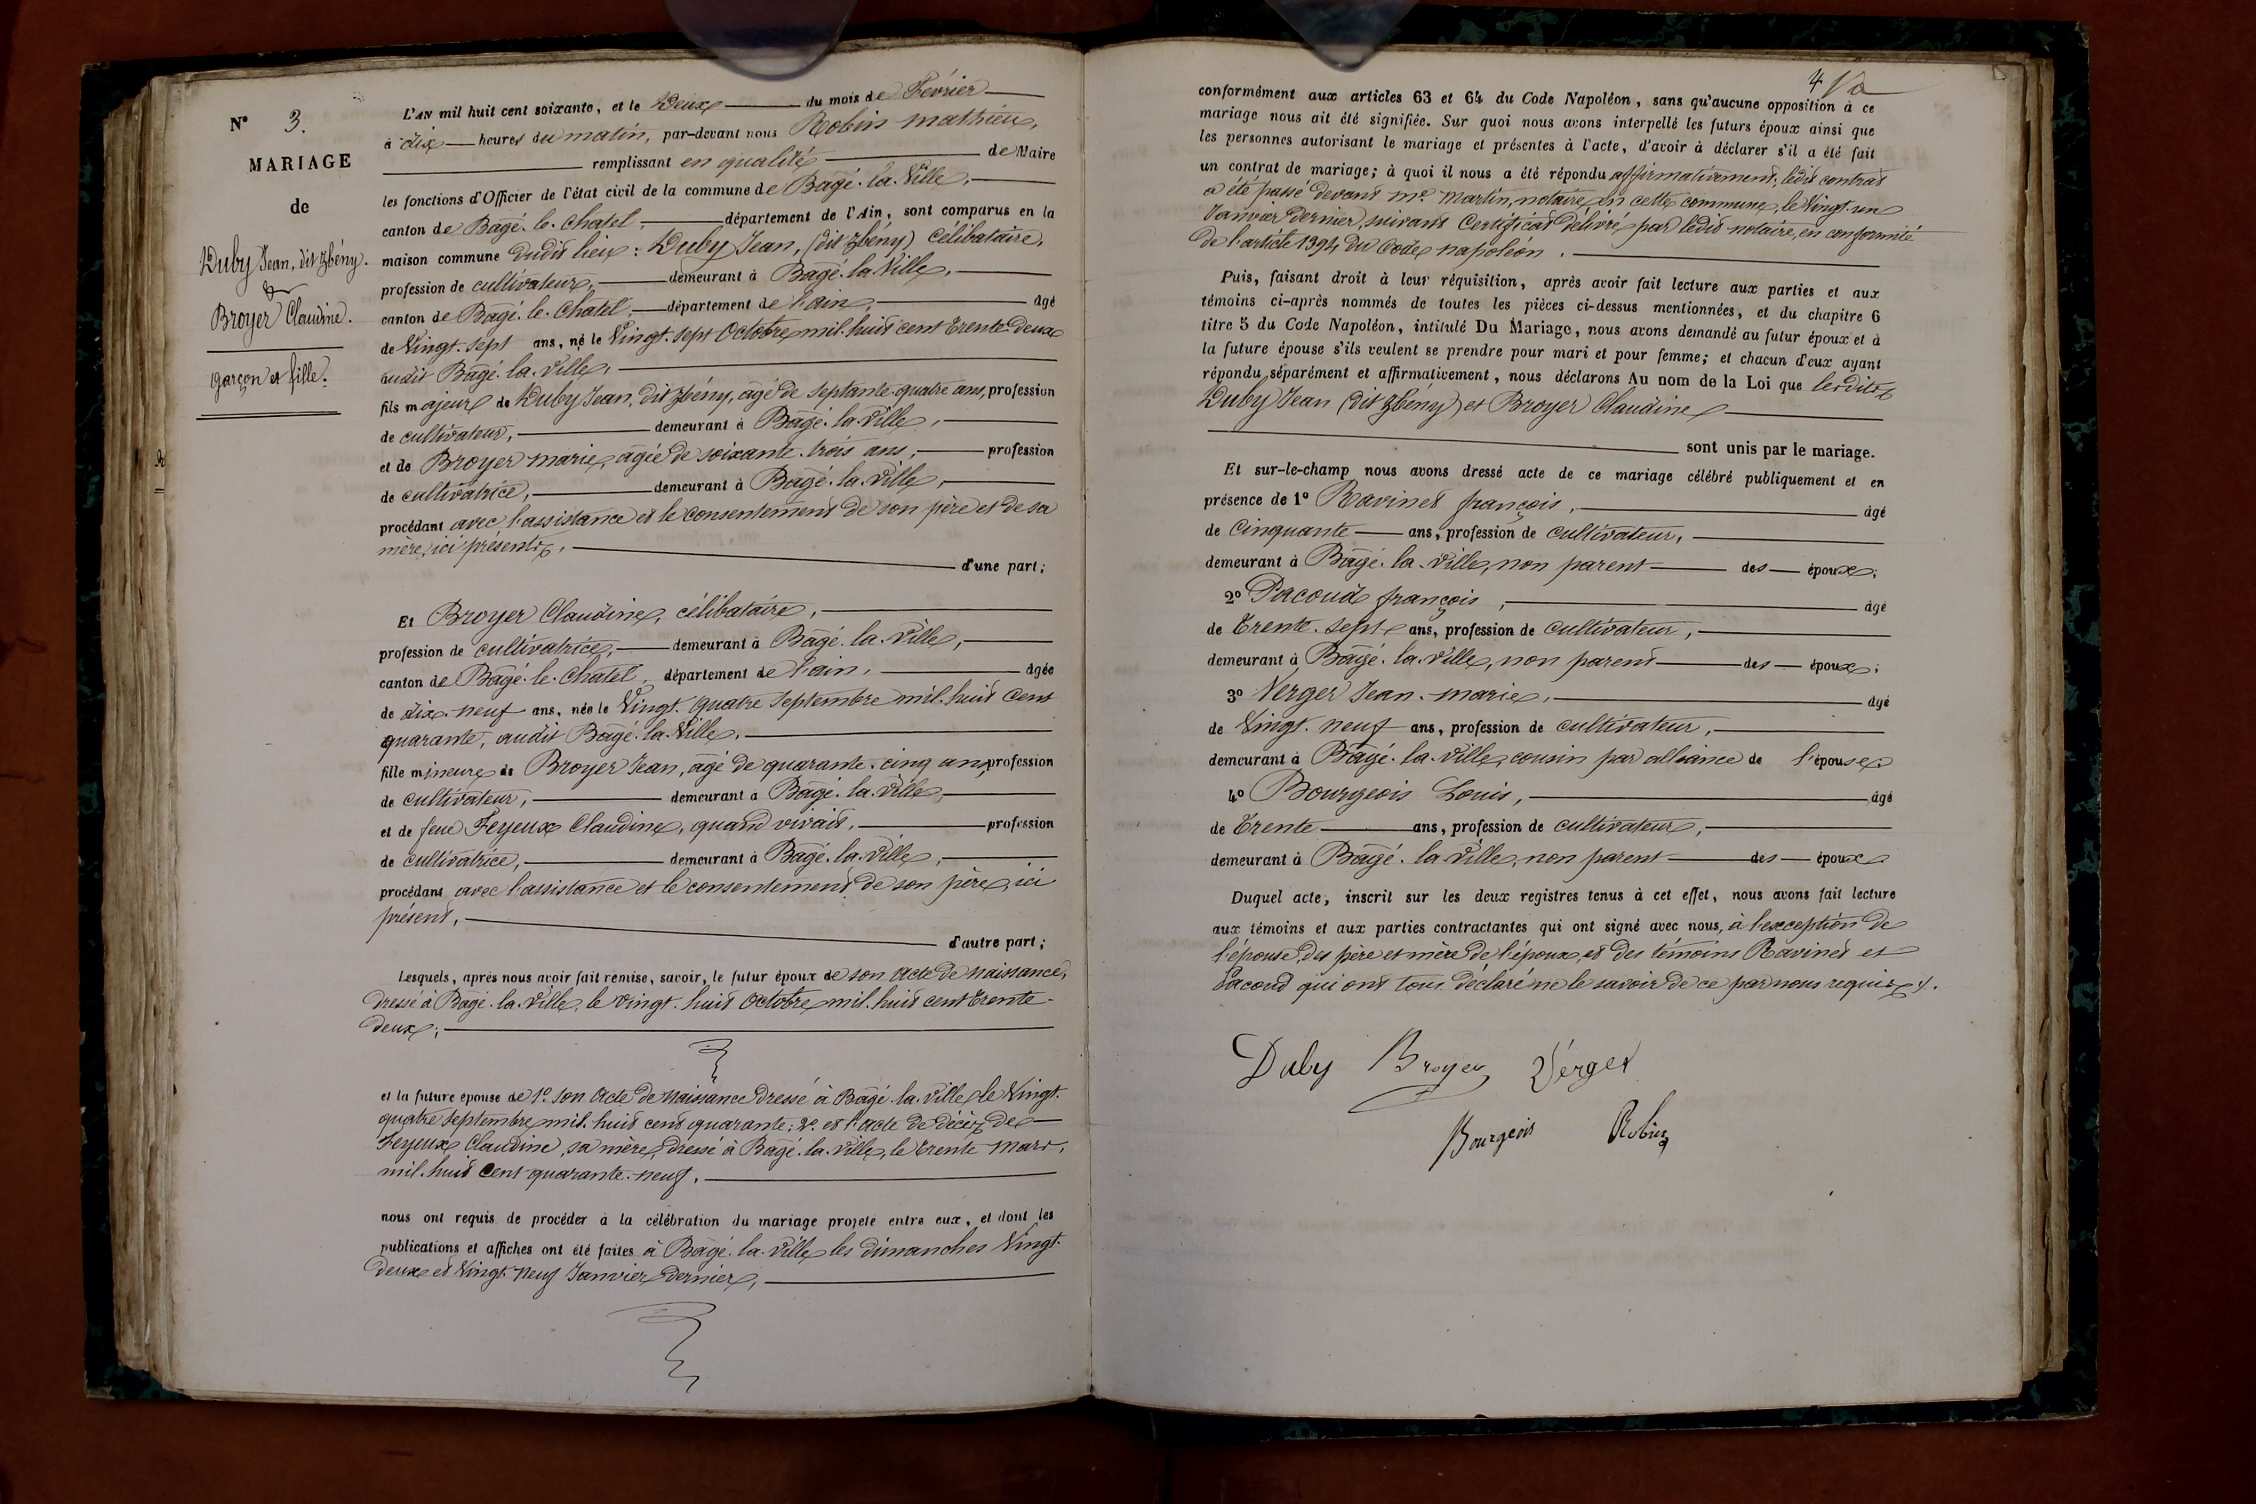 N° 3.
MARIAGE
de
Duby Jean, dit Zbény.
&
Broyer Claudine.
garçon et fille.
L'AN mil huit cent soixante, et le Deux du mois de Février
à dix heures du matin, par-devant nous Robin Mathieu,
remplissant en qualité de Maire
les fonctions d'Officier de l'état civil de la commune de Bâgé-la-Ville,
canton de Bâgé-le-Chatel, département de l'Ain, sont comparus en la
maison commune dudit lieu : Duby Jean, (dit Zbény) célibataire,
profession de cultivateur, demeurant à Bâgé-la-Ville,
canton de Bâgé-le-Chatel, département de l'ain, âgé
de Vingt-sept ans, né le Vingt-sept Octobre mil-huit cent Trente-deux
audit Bâgé-la-Ville,
fils majeur de Duby Jean, dit Zbény, âgé de septante-quatre ans, profession
de cultivateur, demeurant à Bâgé-la-Ville,
et de Broyer marie, âgée de soixante-trois ans, profession
de cultivatrice, demeurant à Bâgé-la-Ville,
procédant avec l'assistance et le consentement de son père et de sa
mère, ici présents, d'une part;
Et Broyer Claudine, célibataire,
profession de cultivatrice, demeurant à Bâgé-la-Ville,
canton de Bâgé-le-Chatel, département de l'ain, âgée
de dix-neuf ans, née le Vingt-quatre septembre mil-huit cent
quarante, audit Bâgé-la-Ville,
fille mineure de Broyer Jean, âgé de quarante-cinq ans, profession
de cultivateur, demeurant à Bâgé-la-Ville,
et de feue Feyeux Claudine, quand vivait, profession
de cultivatrice, demeurant à Bâgé-la-Ville,
procédant avec l'assistance et le consentement de son père, ici
présent, d'autre part;
Lesquels, après nous avoir fait remise, savoir, le futur époux de son acte de Naissance,
dressé à Bâgé-la-Ville, le vingt-huit Octobre mil-huit cent Trente-
deux;
et la future épouse de 1° son acte de Naissance dressé à Bâgé-la-Ville le Vingt-
quatre septembre mil-huit cent quarante; 2° et l'acte de décès de
Feyeux Claudine, sa mère, dressé à Bâgé-la-Ville, le Trente mars,
mil-huit cent quarante-neuf.
nous ont requis de procéder à la célébration du mariage projeté entre eux, et dont les
publications et affiches ont été faites à Bâgé-la-Ville les dimanches Vingt-
deux et Vingt-neuf Janvier dernier,
4
conformément aux articles 63 et 64 du Code Napoléon, sans qu'aucune opposition à ce
mariage nous ait été signifiée. Sur quoi nous avons interpellé les futurs époux ainsi que
les personnes autorisant le mariage et présentes à l'acte, d'avoir à déclarer s'il a été fait
un contrat de mariage; à quoi il nous a été répondu affirmativement; ledit contrat
a été passé devant Me. Martin, notaire en cette commune, le Vingt-un
Janvier dernier, suivant Certificat délivré par ledit notaire, en conformité
de l'article 1394 du Code napoléon.
Puis, faisant droit à leur réquisition, après avoir fait lecture aux parties et aux
témoins ci-après nommés de toutes les pièces ci-dessus mentionnées, et du chapitre 6
titre 5 du Code Napoléon, intitulé Du Mariage, nous avons demandé au futur époux et à
la future épouse s'ils veulent se prendre pour mari et pour femme; et chacun d'eux ayant
répondu séparément et affirmativement, nous déclarons Au nom de la Loi que lesdits
Duby Jean (dit Zbény) et Broyer Claudine
sont unis par le mariage.
Et sur-le-champ nous avons dressé acte de ce mariage célébré publiquement et en
présence de 1° Ravinet françois, âgé
de Cinquante ans, profession de cultivateur,
demeurant à Bâgé-la-Ville, non parent des époux;
2° Pacoud françois, âgé
de Trente-sept ans, profession de cultivateur,
demeurant à Bâgé-la-Ville, non parent des époux;
3° Verger Jean-marie, âgé
de Vingt-neuf ans, profession de cultivateur,
demeurant à Bâgé-la-Ville, cousin par alliance de l'épouse;
4° Bourgeois Louis, âgé
de Trente ans, profession de cultivateur,
demeurant à Bâgé-la-Ville, non parent des époux
Duquel acte, inscrit sur les deux registres tenus à cet effet, nous avons fait lecture
aux témoins et aux parties contractantes qui ont signé avec nous, à l'exception de
l'épouse, des père et mère de l'époux, et des témoins Ravinet et
Pacoud qui ont tous déclaré ne le savoir de ce par nous requis.
Duby Broyer Vérger
Bourgeois Robin